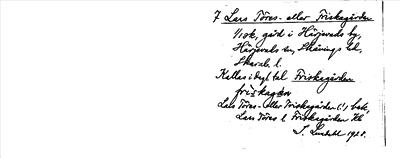 7 Lars Töres- eller Friskegården
1/1 ok, gård i Härjevads by,
Härjevads sn, Skånings hd,
Skarab. l.
Kallas i dagl. tal Friskegården
friskagɔn
Lars Töres- eller Friskegården (!) bok,
Lars Töres l. Friskegården Kb
S. Lindahl 1928.